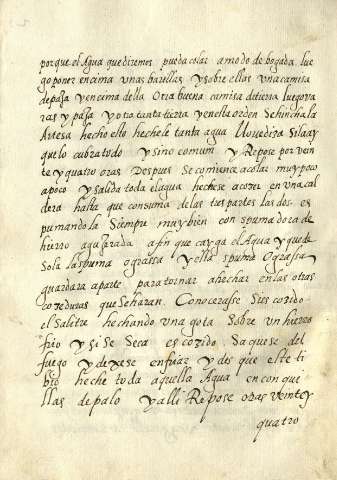 porque el Agua que diremos pueda colar a modo de bogada lue
go poner encima unas barillas y sobre ellas una camisa
de paja y encima della Otra buena camisa de tierra luego va
ras y paja y otro tanta tierra y en esta orden se hincha la
Artesa hecho esto hechele tanta agua llovediza si la ay
que lo cubra todo y sino comun y Repose por vein
te y quatro oras Despues se comience a colar muy poco
a poco y salida toda el agua hechese a cozer en una cal
dera hasta que consuma de las tres partes las dos es
pumandola Siempre muy bien con spumadora de
hierro agujerada a fin que cayga el Agua y quede
Sola la spuma o grassa y esta spuma O grassa
guardara a parte para tornar a hechar en las otras
cozeduras que Se haran. Conocerasse Si es cozido
el Salitre hechando una gota Sobre un hierro
frio y si se Seca es cozido Saquese del
fuego y dexese enfriar y des que este ti
bio heche toda aquella Agua en conqui
llas de palo y alli Repose oras veinte y
quatro